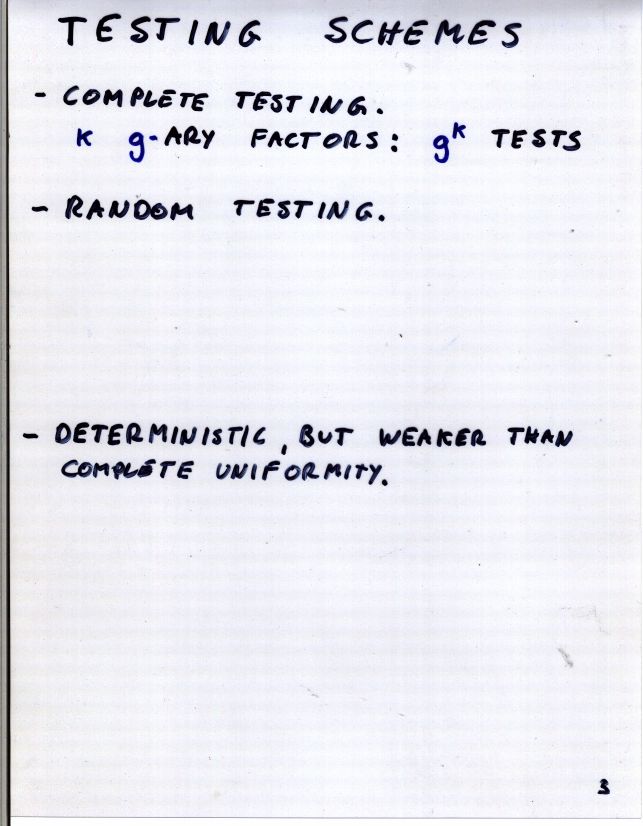 TESTING SCHEMES
- COMPLETE TESTING.
K g-ARY FACTORS: g^K TESTS
- RANDOM TESTING.
- DETERMINISTIC, BUT WEAKER THAN
COMPLETE UNIFORMITY.
3